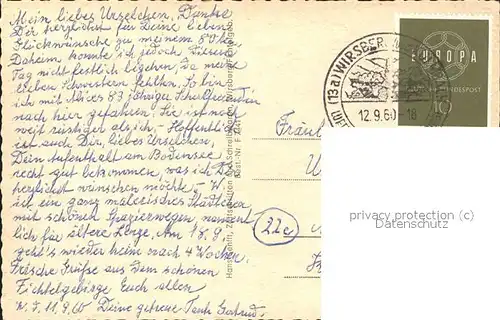 Mein liebes Urselchen, Danke
Dir herzlichst für Deine lieben
Glückwünsche zu meinem
Daheim konnte ich jedoch diesen
Tag nicht festlich begehen, da meine
lieben Schwestern fehlten. So bin
ich mit Alices 83 jähriger Schulfreundin
nach hier gefahren. Sie ist noch
weit rüstiger als ich. - Hoffentlich
ist auch Dir, liebes Urselchen,
Dein Aufenthalt am Bodensee
recht gut bekommen, was ich Dir
herzlichst wünschen möchte. - W.
ist ein ganz malerisches Städtchen
mit schönen Spazierwegen, nament-
lich für ältere Leute. Am 18.9.
geht's wieder heim nach 4 Wochen.
Frische Grüße aus dem schönen
Fichtelgebirge Euch allen
W., 11.9.60 Deine getreue Tante Gertrud.
(13a) WIRSBERG
12.9.60-18
EUROPA
DEUTSCHE BUNDESPOST
Fräul
U
22c
privacy protection (c)
Datenschutz